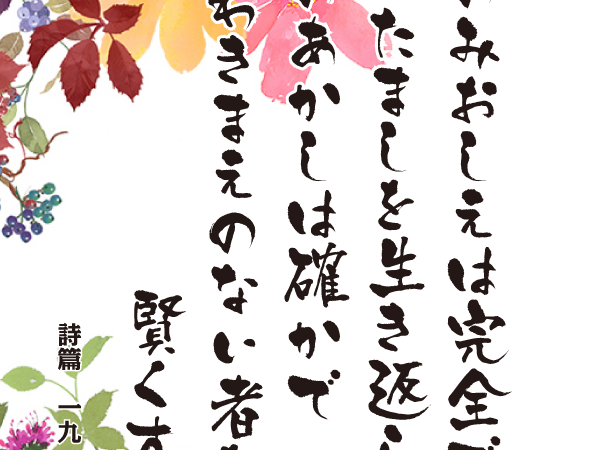 みおしえは完全で
たましを生き返ら
あかしは確かで
わきまえのない者
賢くす
詩篇 一九